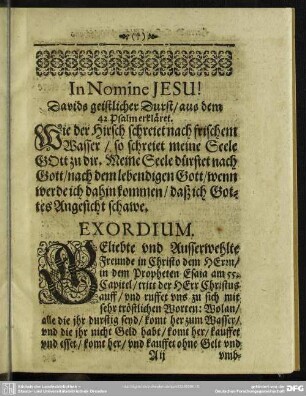 (†)
In Nomine JESU!
Davids geistlicher Durst / aus dem
42 Psalm erkläret.
Wie der Hirsch schreiet nach frischem
Wasser / so schreiet meine Seele
GOtt zu dir. Meine Seele dürstet nach
Gott / nach dem lebendigen Gott / wenn
werde ich dahin kommen / daß ich Got-
tes Angesicht schawe.
EXORDIUM.
GEliebte vnd Ausserwehlte
Freunde in Christo dem HErrn /
in dem Propheten Esaia am 55.
Capitel / tritt der HErr Christus
auff / vnd ruffet vns zu sich mit
sehr tröstlichen Worten: Wolan /
alle die jhr durstig seyd / komt her zum Wasser /
vnd die jhr nicht Geld habt / komt her / kauffet
vnd esset / komt her / vnd kauffet ohne Gelt vnd
A ij
vmb-